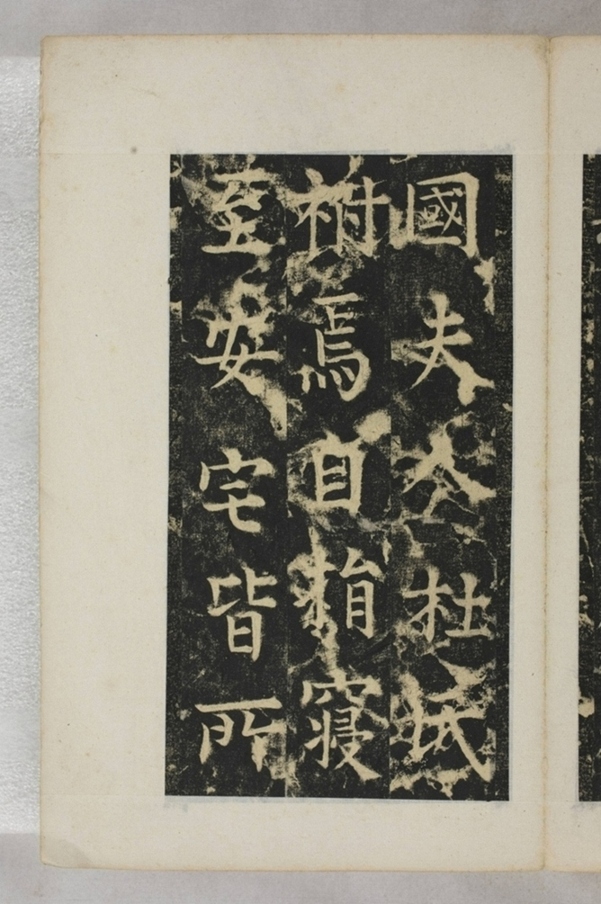 國夫人杜氏
祔焉自捐寢
至安宅皆所